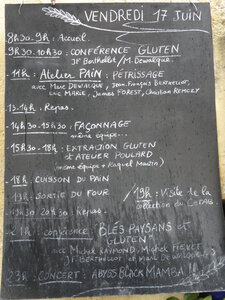 VENDREDI 17 JUIN
8h30-9h : Accueil.
9h30-10h30 : CONFÉRENCE GLUTEN
JF Berthellot / M. Dewalque.
11h : Atelier PAIN : PÉTRISSAGE
avec Marc DEWALQUE, Jean-François BERTHELLOT,
Luc MARIE, James FOREST, Christian REMESY
13-14h : Repas.
14h30-15h30 : FAÇONNAGE
même équipe...
15h30-18h : EXTRACTION GLUTEN
et ATELIER POULARD
(même équipe + Raquel
18h : CUISSON DU PAIN
SORTIE DU FOUR
19h : Visite de la
collection du
20h30 : Repas
21h : conférence : BLÉS PAYSANS et
GLUTEN"
avec Michel RAYMOND, Michel
JF BERTHELLOT et Marc DEWALQUE
23h : CONCERT : ABYSS BLACK MAMBA